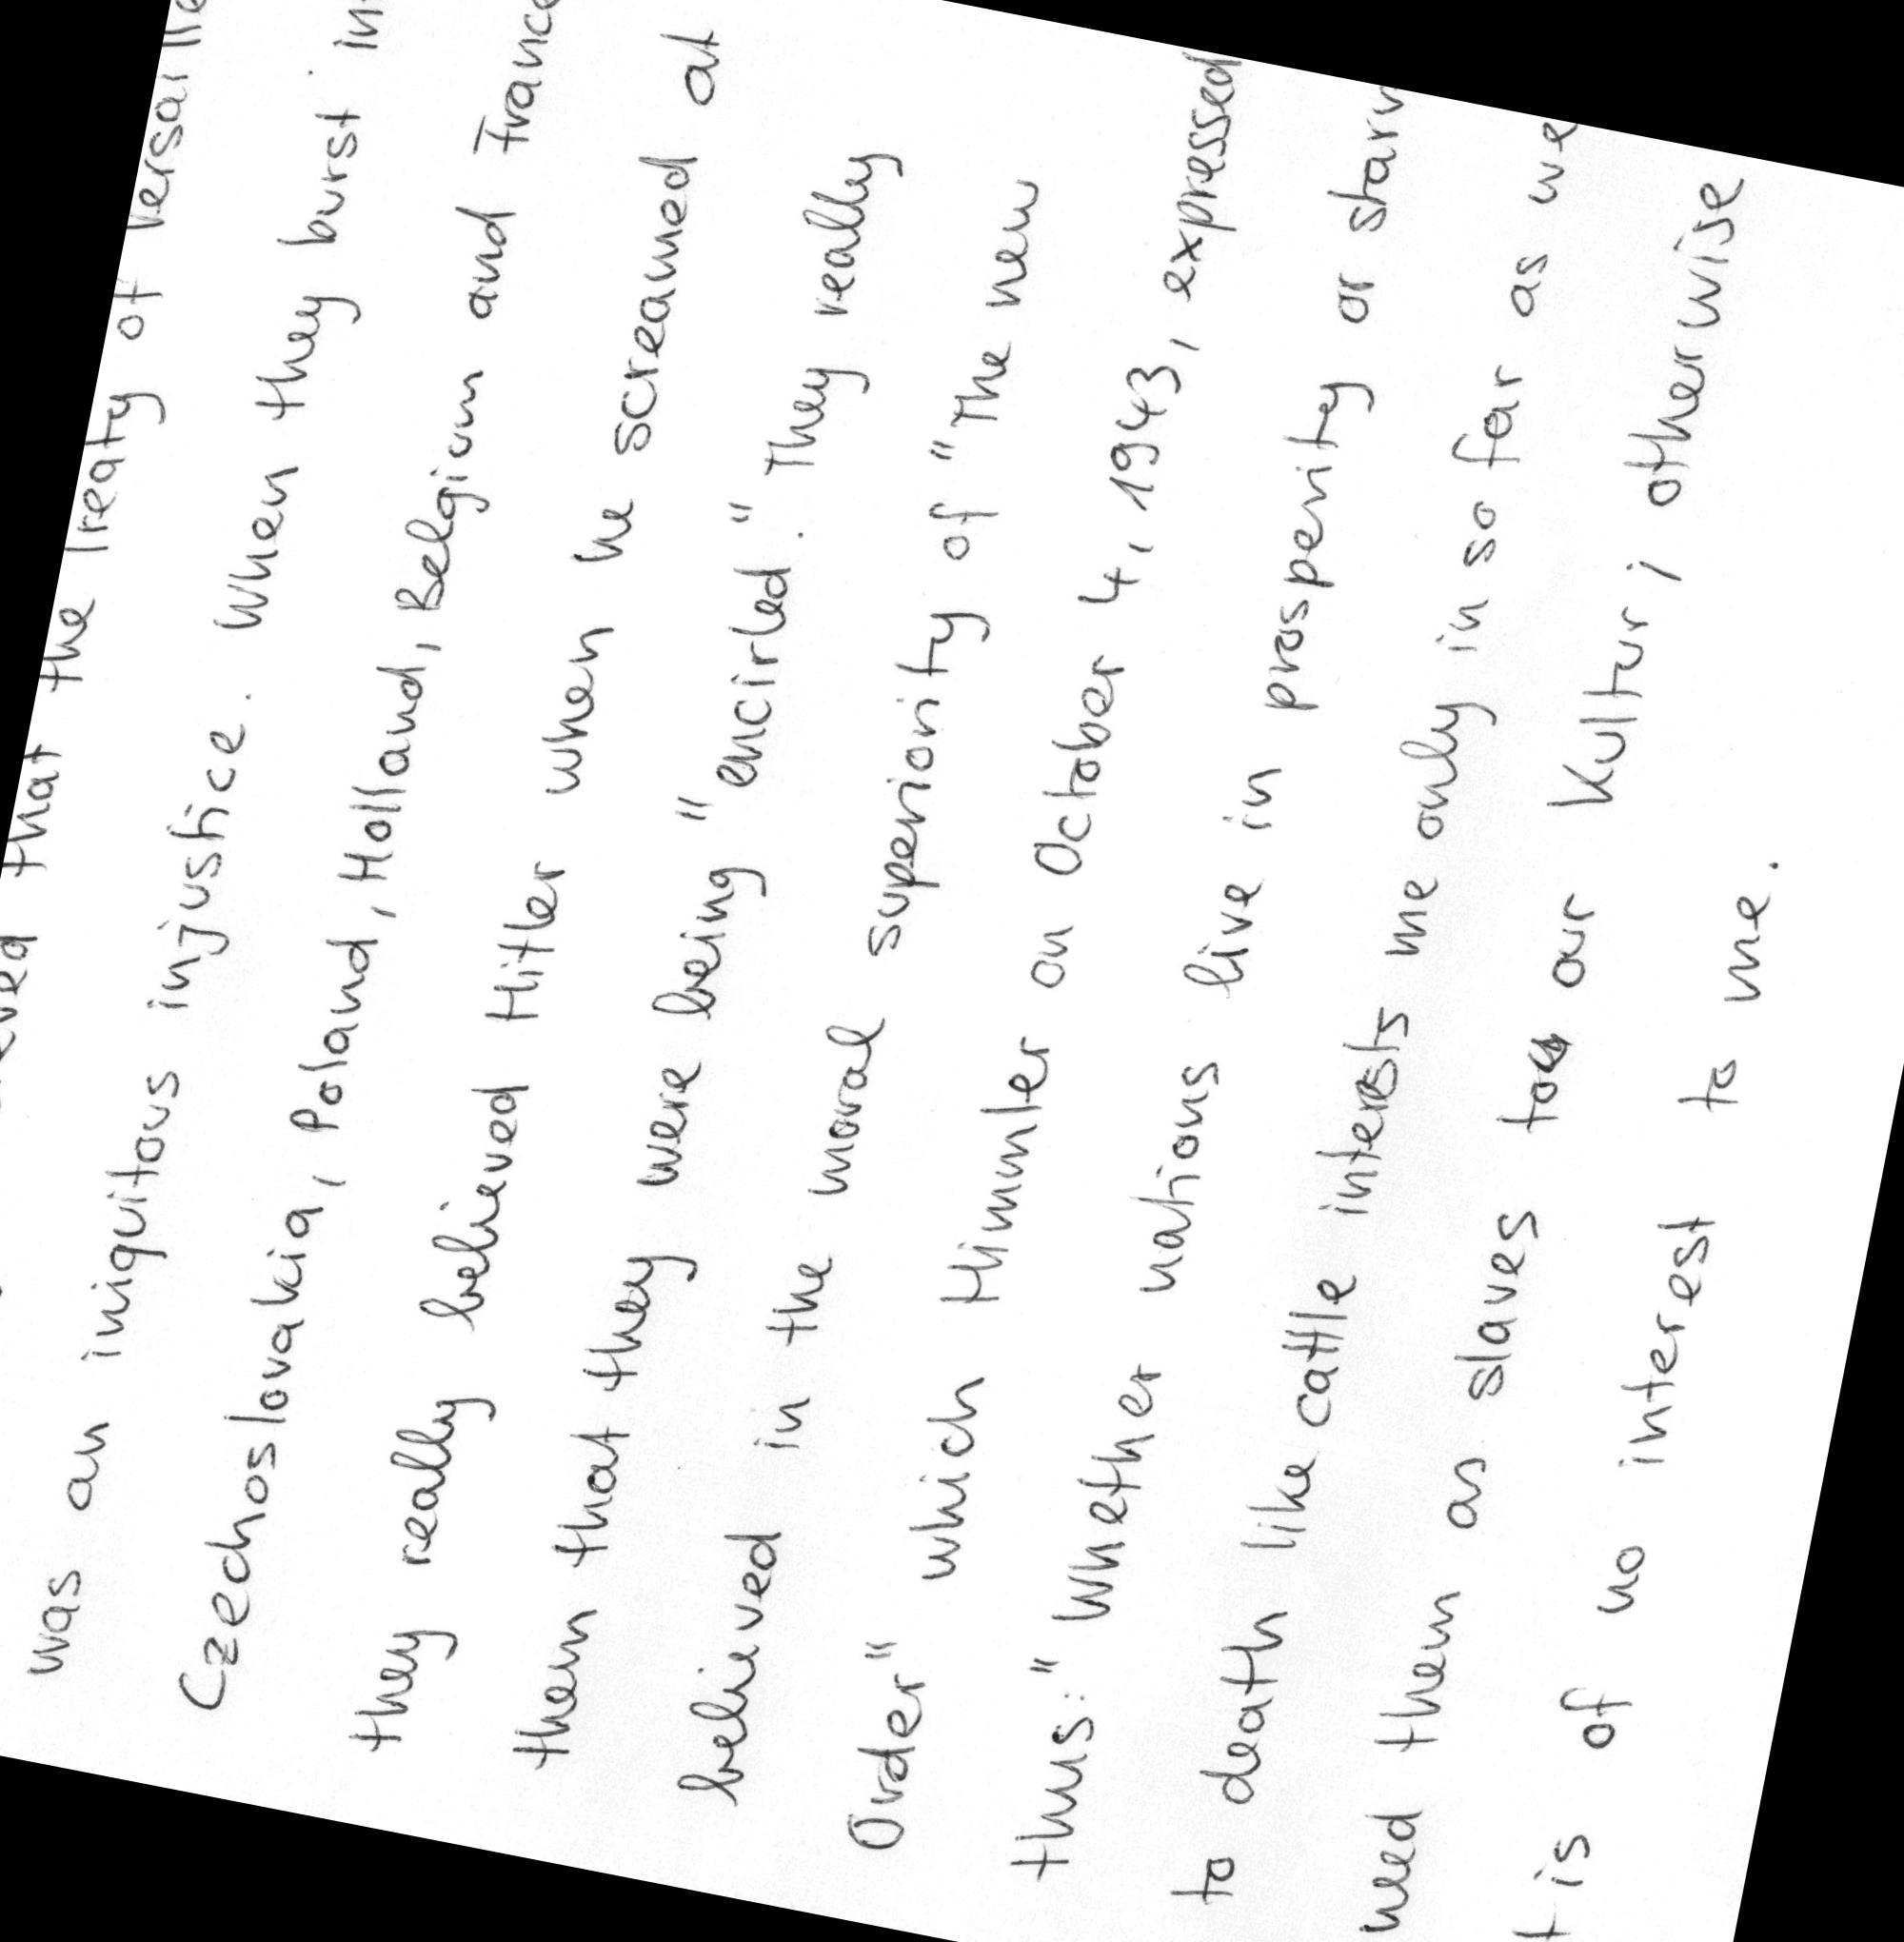 that the Treaty of Versaille
was an iniquitous injustice. When they burst in
Czechoslovakia, Poland, Holland, Belgium and France
they really believed Hitler when he screamed at
them that they were being "encirled". They really
believed in the moral superiority of "The new
Order" which Himmler on October 4, 1943, expressed
thus: "Whether nations live in prosperity or starv
to death like cattle interests me only in so far as we
need them as slaves to our Kultur; otherwise
t is of no interest to me.